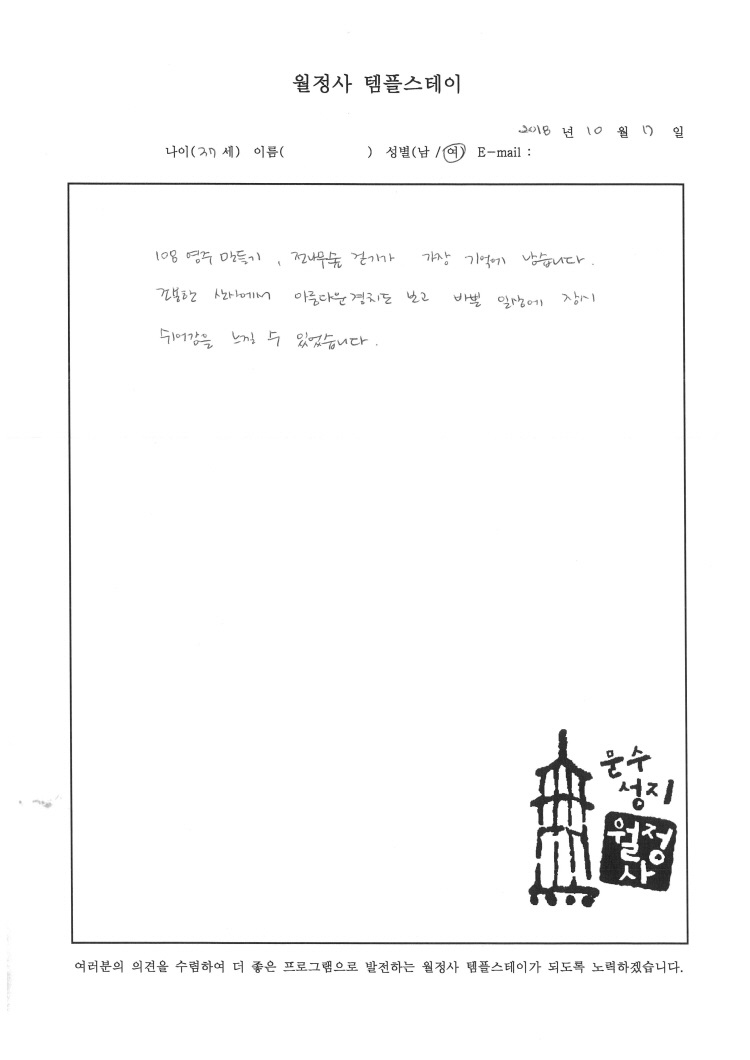 월정사 템플스테이
2018 년 10 월 17 일
나이(37 세) 이름( ) 성별(남 / 여) E-mail :
108 염주 만들기, 전나무숲 걷기가 가장 기억에 남습니다.
산사에서 아름다운 경치도 보고 바쁜 일상에 잠시
쉬어감을 느낄 수 있었습니다.
문수
성지
월정
사
여러분의 의견을 수렴하여 더 좋은 프로그램으로 발전하는 월정사 템플스테이가 되도록 노력하겠습니다.